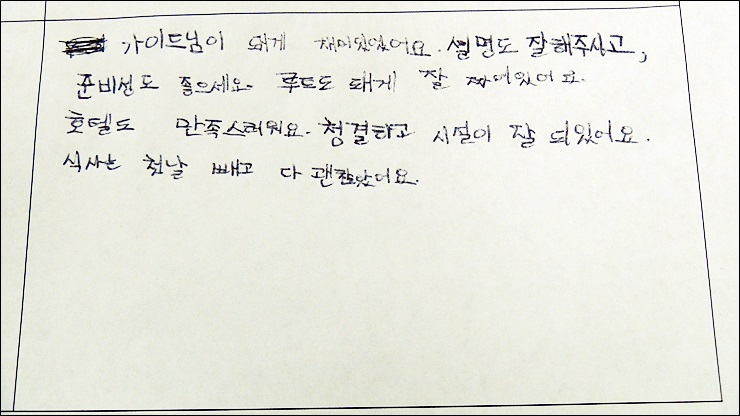 가이드님이 돼게 재미있었어요. 설명도 잘해주시고,
준비성도 좋으세요. 루트도 돼게 잘 짜여있어요.
호텔도 만족스러워요. 청결하고 시설이 잘 되있어요.
식사는 첫날 빼고 다 괜찮았어요.